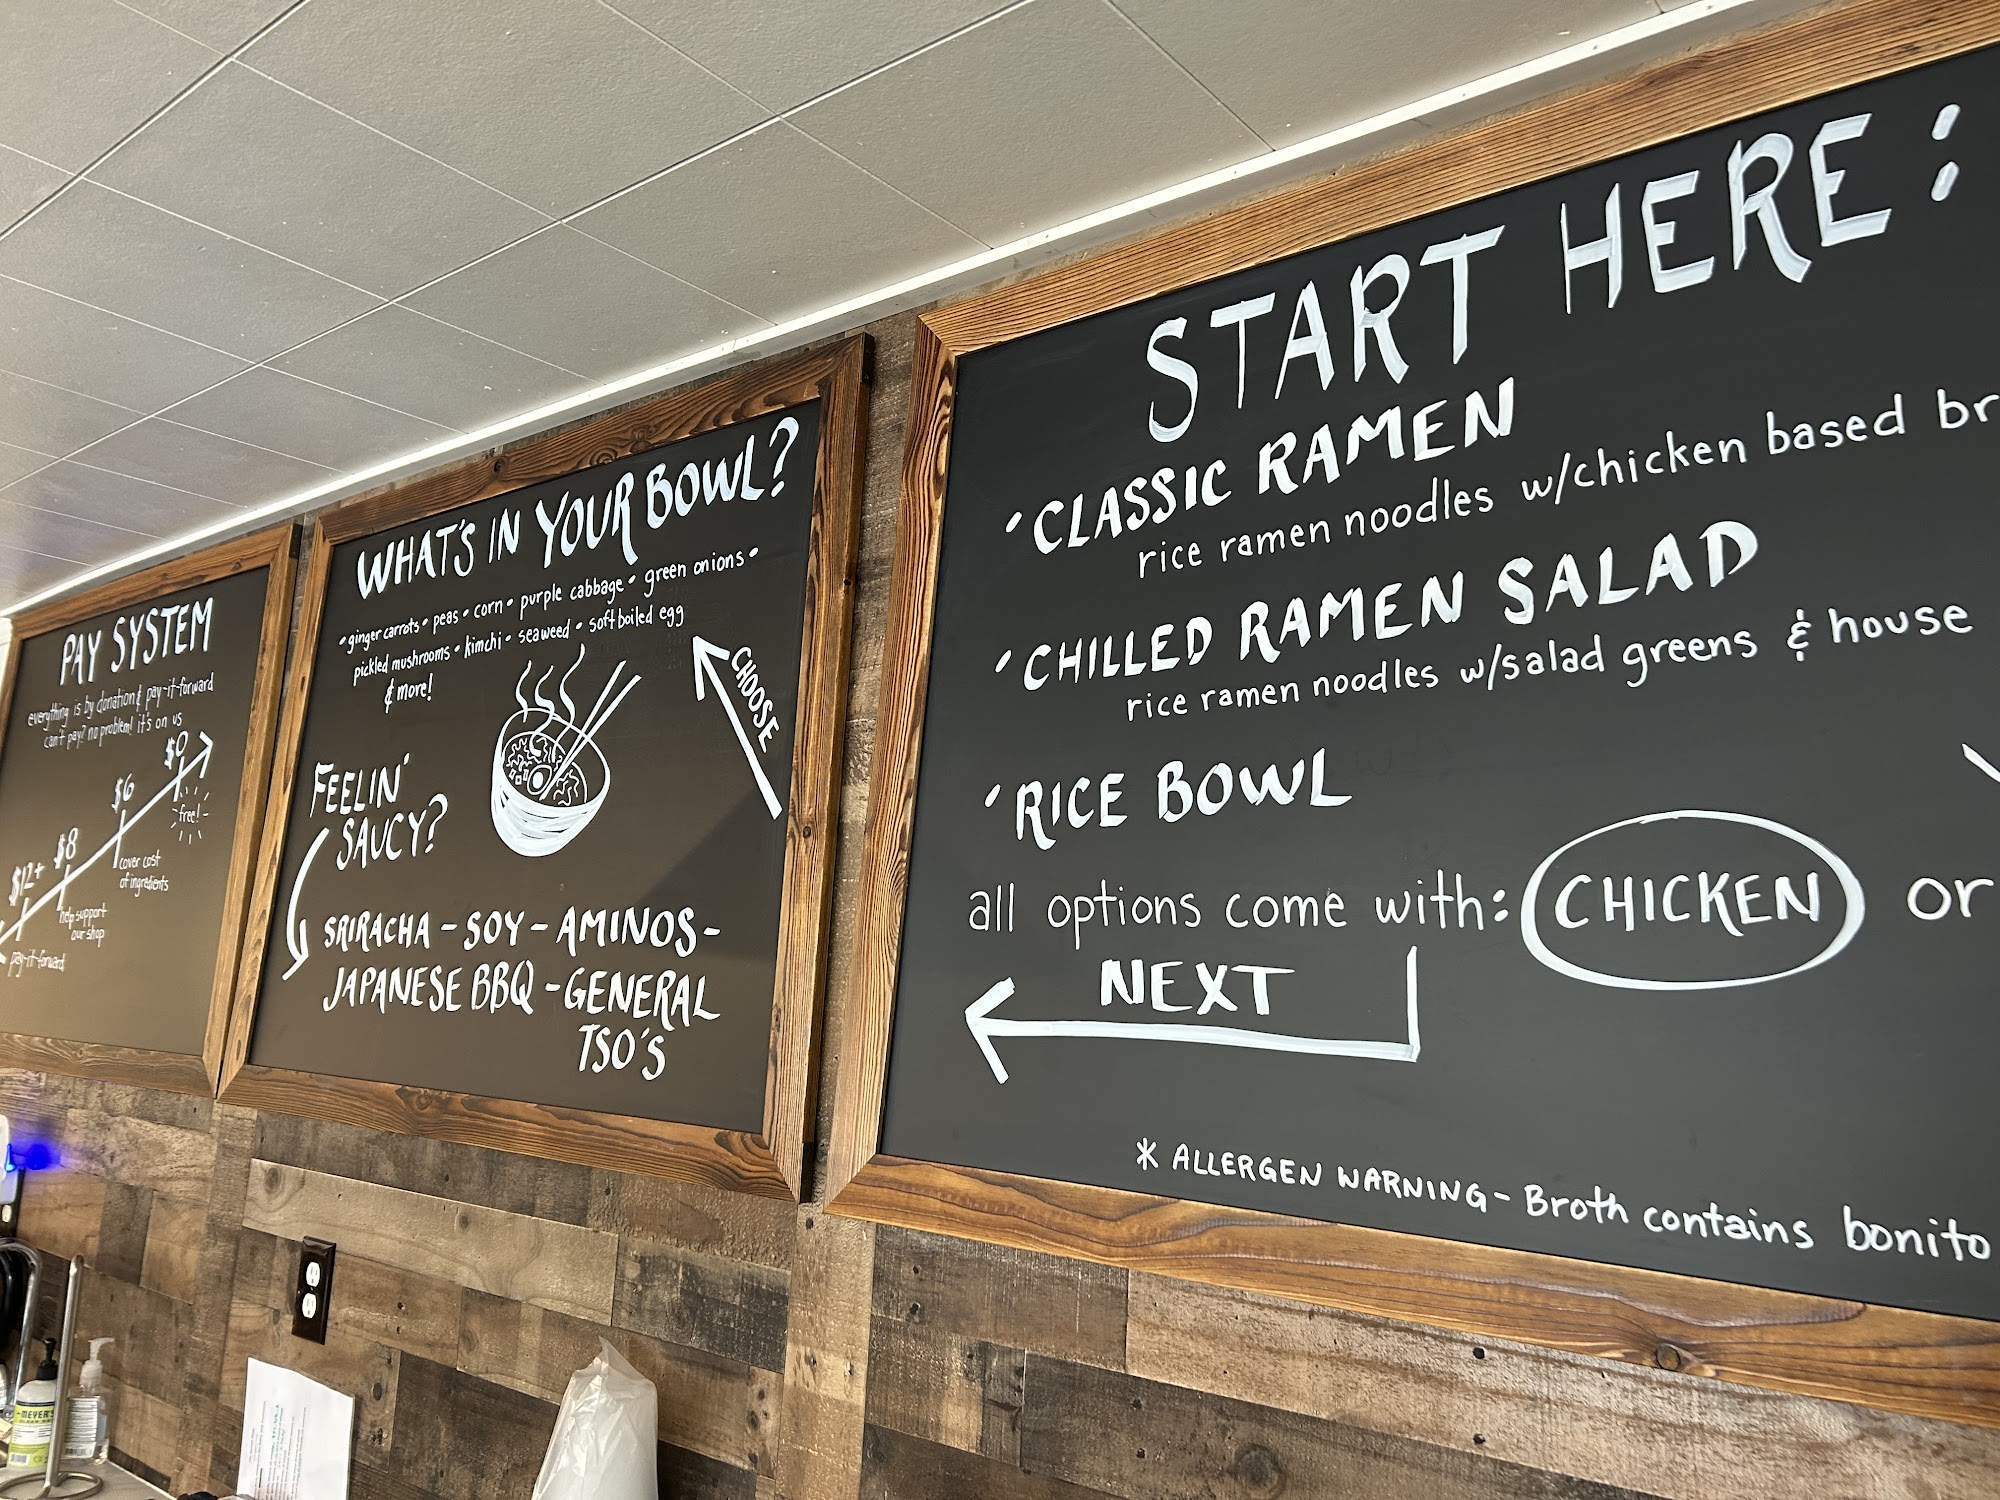 START HERE:
CLASSIC RAMEN
rice ramen noodles w/chicken based br
CHILLED RAMEN SALAD
rice ramen noodles w/salad greens & house
RICE BOWL
all options come with: CHICKEN or
NEXT
* ALLERGEN WARNING- Broth contains bonito
WHAT'S IN YOUR BOWL?
• ginger carrots • peas • corn • purple cabbage • green onions •
pickled mushrooms • kimchi • seaweed • soft boiled egg
& more!
CHOOSE
FEELIN'
SAUCY?
SRIRACHA - SOY - AMINOS -
JAPANESE BBQ - GENERAL
TSO'S
PAY SYSTEM
everything is by donation & pay-it-forward
can't pay? no problem! it's on us
$0
free!
$6
cover cost
of ingredients
$8
help support
our shop
$12+
pay-it-forward
MEYER'S